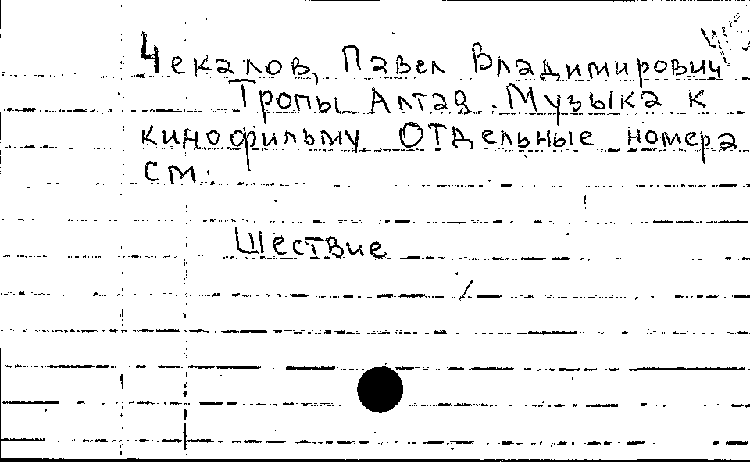 Чекалов, Павел Владимирович
Тропы Алтая. Музыка к
кинофильму Отдельные номера
см.
Шествие